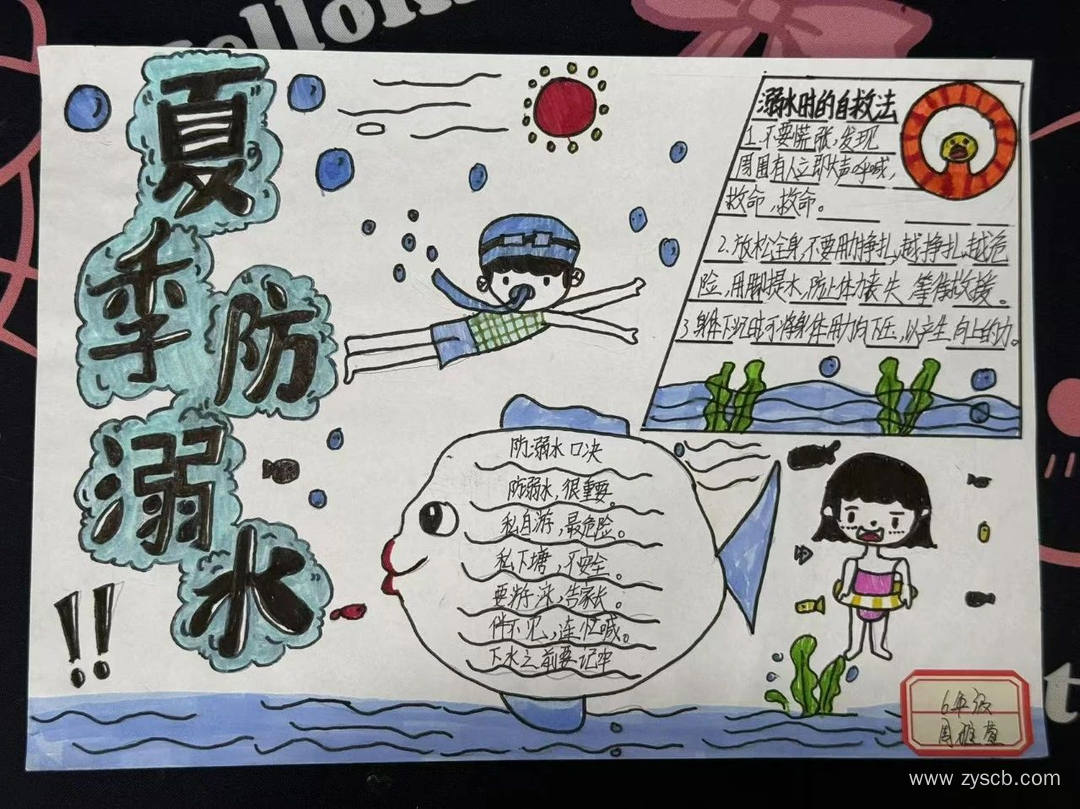 夏季防溺水!!
溺水时的自救法
1.不要慌张,发现
周围有人立即大声呼喊,
救命,救命。
2.放松全身,不要用力挣扎,越挣扎,越危
险,用脚提水,防止体力丧失,等待救援。
3.身体下沉时可将身体用力向下压,以产生向上的力。
防溺水口决
防溺水,很重要。
私自游,最危险。
私下塘,不安全。
要游泳,告家长。
伴不见,连忙喊。
下水之前要记牢
6年级
周雅萱
www.zyscb.com